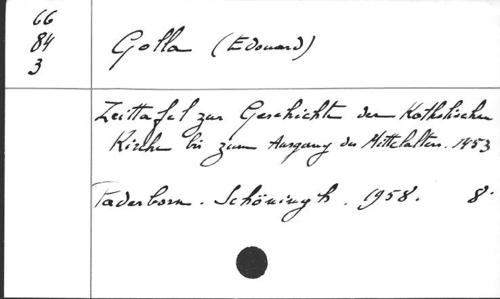 66
84
3
Golla (Edouard)
Zeittafel zur Geschichte der Katholischen
Kirche bis zum Ausgang des Mittelalters. 1453
Paderborn. Schöningh. 1958. 8°